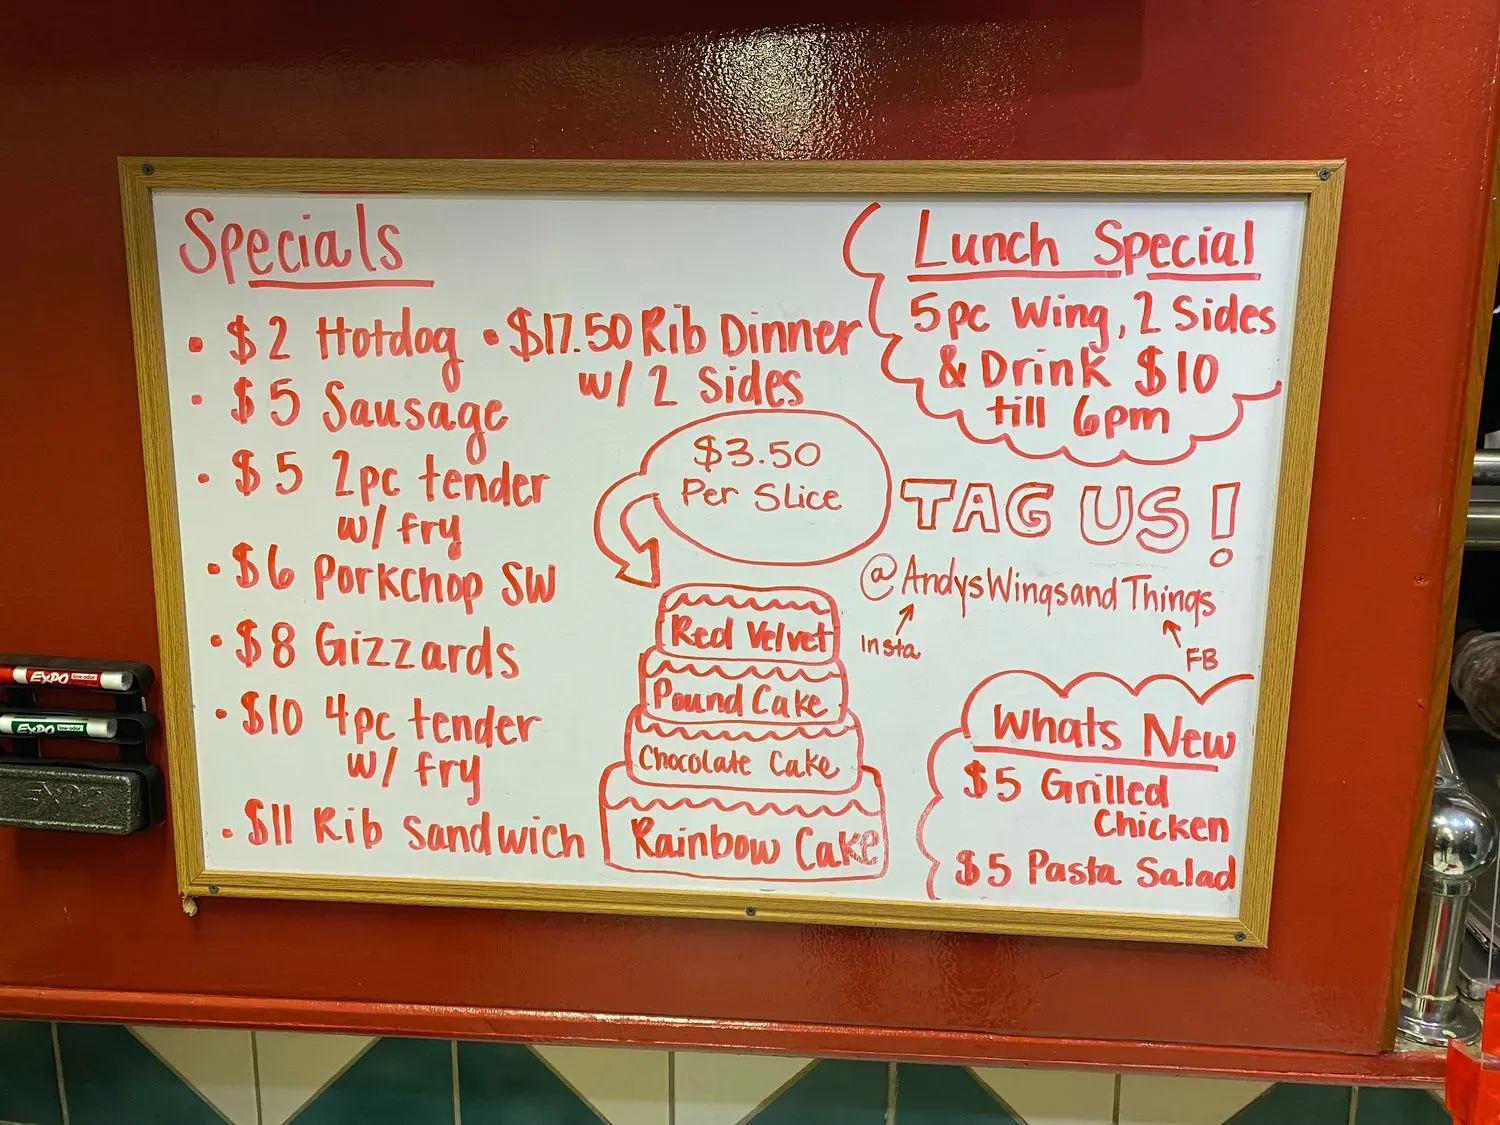 Specials
• $2 Hotdog
• $5 Sausage
• $5 2pc tender
w/ fry
• $6 Porkchop SW
• $8 Gizzards
• $10 4pc tender
w/ fry
• $11 Rib Sandwich
• $17.50 Rib Dinner
w/ 2 Sides
$3.50
Per Slice
Red Velvet
Pound Cake
Chocolate Cake
Rainbow Cake
Lunch Special
5pc Wing, 2 Sides
& Drink $10
till 6pm
TAG US!
@AndysWingsandThings
Insta
FB
Whats New
$5 Grilled
Chicken
$5 Pasta Salad
EXPO low odor
EXPO low odor
EXPO